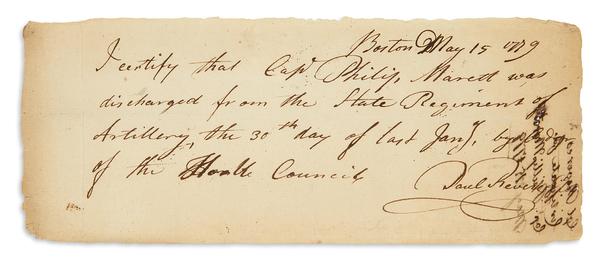 Boston May 15 1779
I certify that Capt Philip Marett was
discharged from the State Regiment of
Artillery, the 30th day of last Jany, by
of the Honble Council
Paul Revere